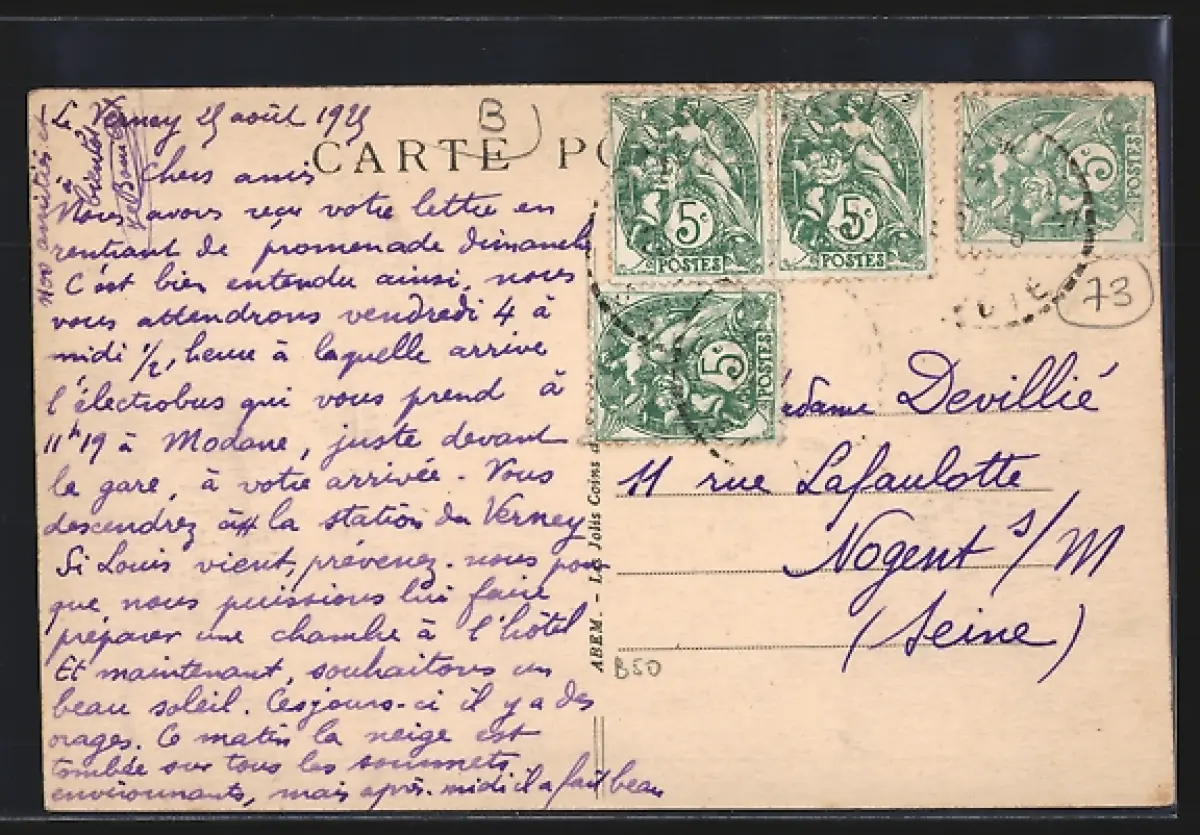 Le Verney 25 août 1925
CARTE
Chers amis
Nous avons reçu votre lettre en
rentrant de promenade dimanche
C'est bien entendu ainsi, nous
vous attendrons vendredi 4 à
midi 1/2, heure à laquelle arrive
l'électrobus qui vous prend à
11h19 à Modane, juste devant
la gare, à votre arrivée. Vous
descendrez à la station du Verney
Si Louis vient, prévenez-nous pour
que nous puissions lui faire
préparer une chambre à l'hôtel
Et maintenant, souhaitons un
beau soleil. Ces jours-ci il y a des
orages. Ce matin la neige est
tombée sur tous les sommets
environnants, mais après-midi il a fait beau
Nos amitiés et
à
bientôt
B
5c
POSTES
5c
POSTES
5c
POSTES
5c
POSTES
73
Madame Devillié
11 rue Lafaulotte
Nogent s/M
(Seine)
ABEM. - Les Jolis Coins d
B50